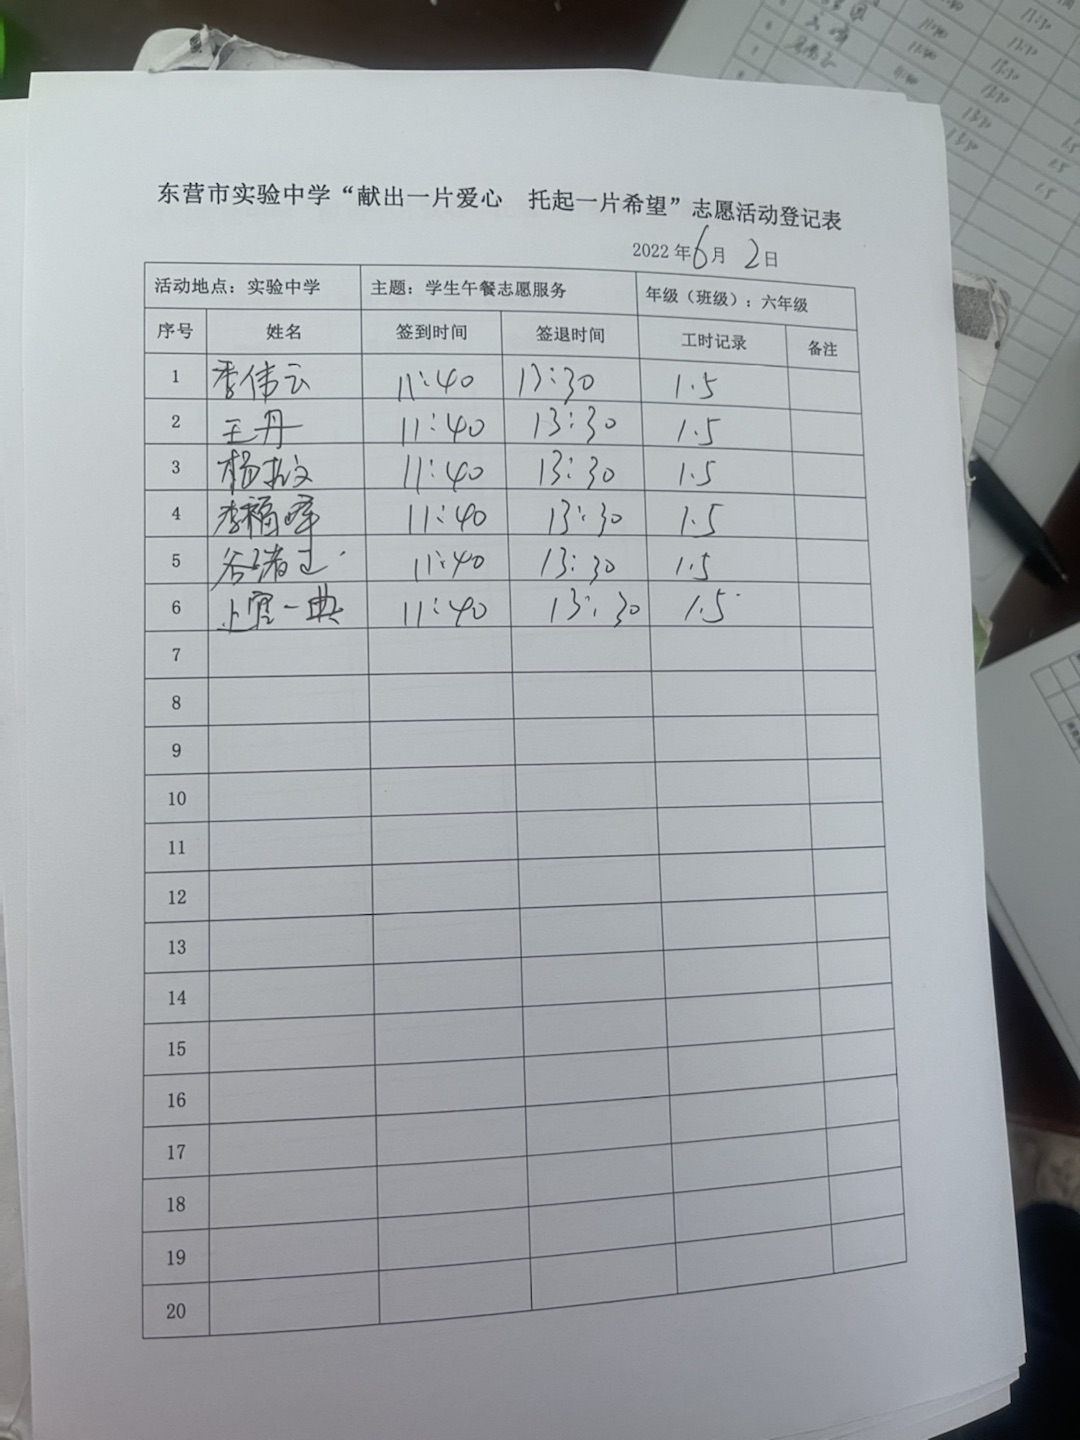 东营市实验中学“献出一片爱心 托起一片希望”志愿活动登记表
2022年6月2日
活动地点：实验中学 主题：学生午餐志愿服务 年级（班级）：六年级
序号 姓名 签到时间 签退时间 工时记录 备注
1 李伟云 11:40 13:30 1.5
2 王丹 11:40 13:30 1.5
3 杨 11:40 13:30 1.5
4 李福峰 11:40 13:30 1.5
5 谷 11:40 13:30 1.5
6 上官一典 11:40 13:30 1.5
7
8
9
10
11
12
13
14
15
16
17
18
19
20